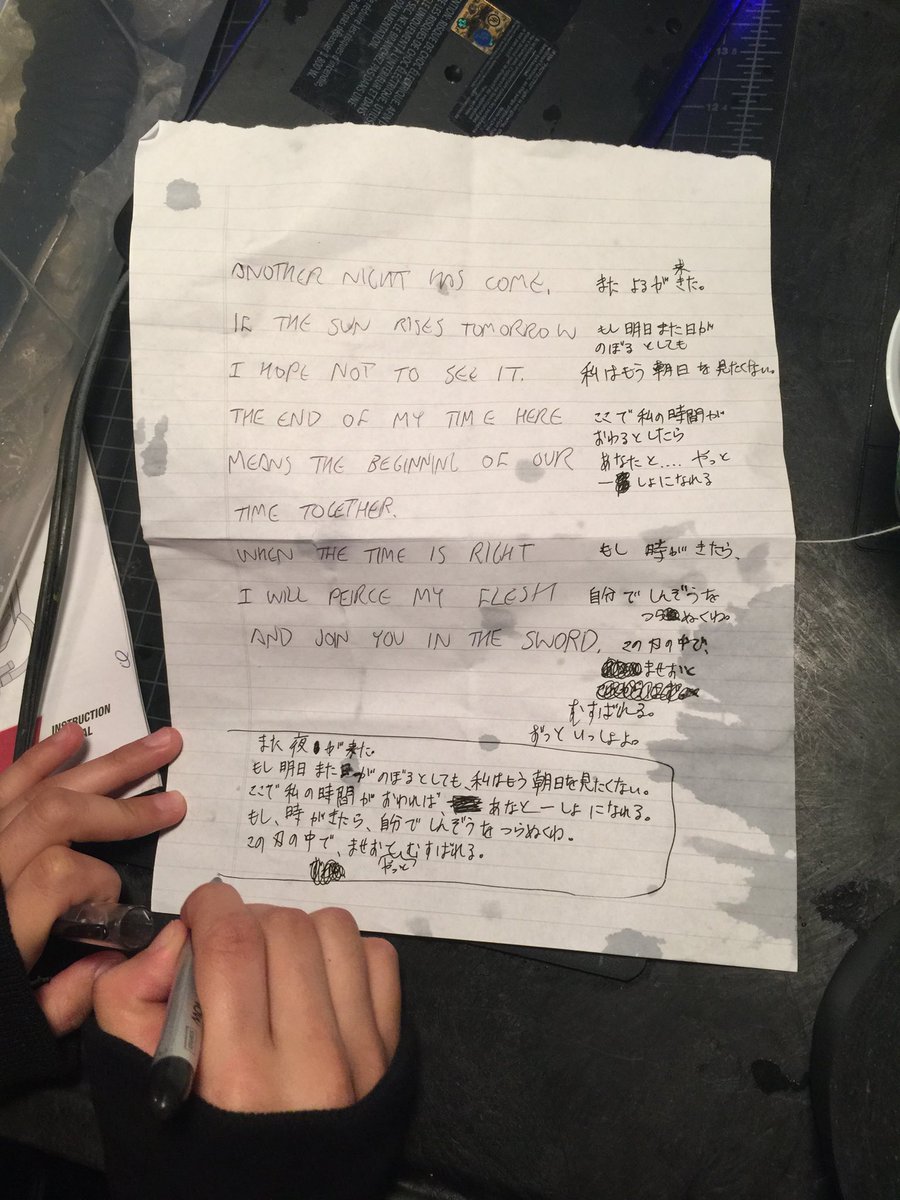 ANOTHER NIGHT HAS COME.
また よるが きた。
来
IF THE SUN RISES TOMORROW
もし 明日 また 日が
のぼる としても
I HOPE NOT TO SEE IT.
私はもう 朝日 を 見たくない。
THE END OF MY TIME HERE
ここで 私の時間が
おわるとしたら
MEANS THE BEGINNING OF OUR
あなたと.... やっと
一 しょになれる
TIME TOGETHER.
WHEN THE TIME IS RIGHT
もし 時が きたら、
I WILL PEIRCE MY FLESH
自分で しんぞうを
つらぬくわ。
AND JOIN YOU IN THE SWORD.
この 刃の中で、
ませおと
むすばれる。
ずっと いっしょよ。
また 夜 が来た。
もし 明日 また 日 がのぼるとしても、私はもう 朝日を見たくない。
ここで 私の時間が おわれば、 あなと 一しょ になれる。
もし、時 がきたら、自分で しんぞうを つらぬくわ。
この 刃の中で、ませおと むすばれる。
(やっと)
INSTRUCTION